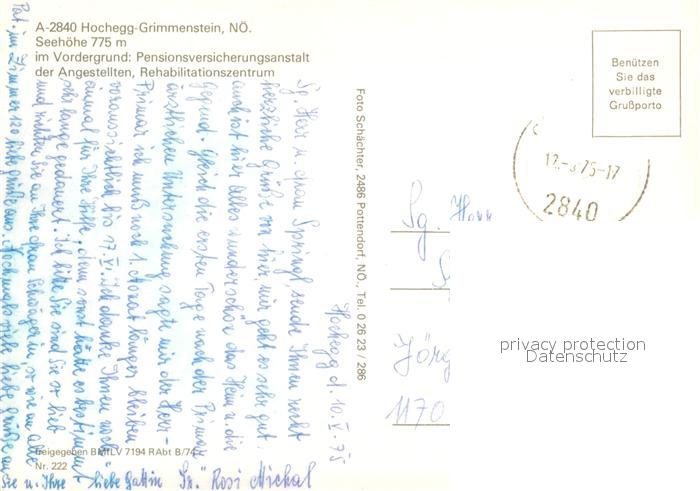 A-2840 Hochegg-Grimmenstein, NÖ.
Seehöhe 775 m
im Vordergrund: Pensionsversicherungsanstalt
der Angestellten, Rehabilitationszentrum
Benützen
Sie das
verbilligte
Grußporto
-75-17
2840
Foto Schächter, 2486 Pottendorf, NÖ., Tel. 0 26 23 / 286
Hochegg d. 10. V. 75
Sg. Herr u. Frau Springl, sende Ihnen recht
herzliche Grüße von hier, mir geht es sehr gut.
auch ist hier alles wunderschön das Heim u. die
Gegend. Gleich die ersten Tage nach der Primar
ärztlichen Untersuchung sagte mir der Herr
Primar ich muß noch 1. Monat länger bleiben
voraussichtlich bis 17. V. Ich danke Ihnen noch
einmal für Ihre Hilfe, denn sonst hätte es bestimmt
sehr lange gedauert. Ich bitte Sie sind Sie so lieb
und richten Sie an Ihre Frau Schwägerin so wie an alle
Pat. im Zimmer 120 liebe Grüße aus. Nochmals viele liebe Grüße an
Sie u. Ihre liebe Gattin Sr. Rosi Michal
Sg. Herr
Jörg
1170
privacy protection
Datenschutz
freigegeben BMfLV 7194 RAbt B/74
Nr. 222